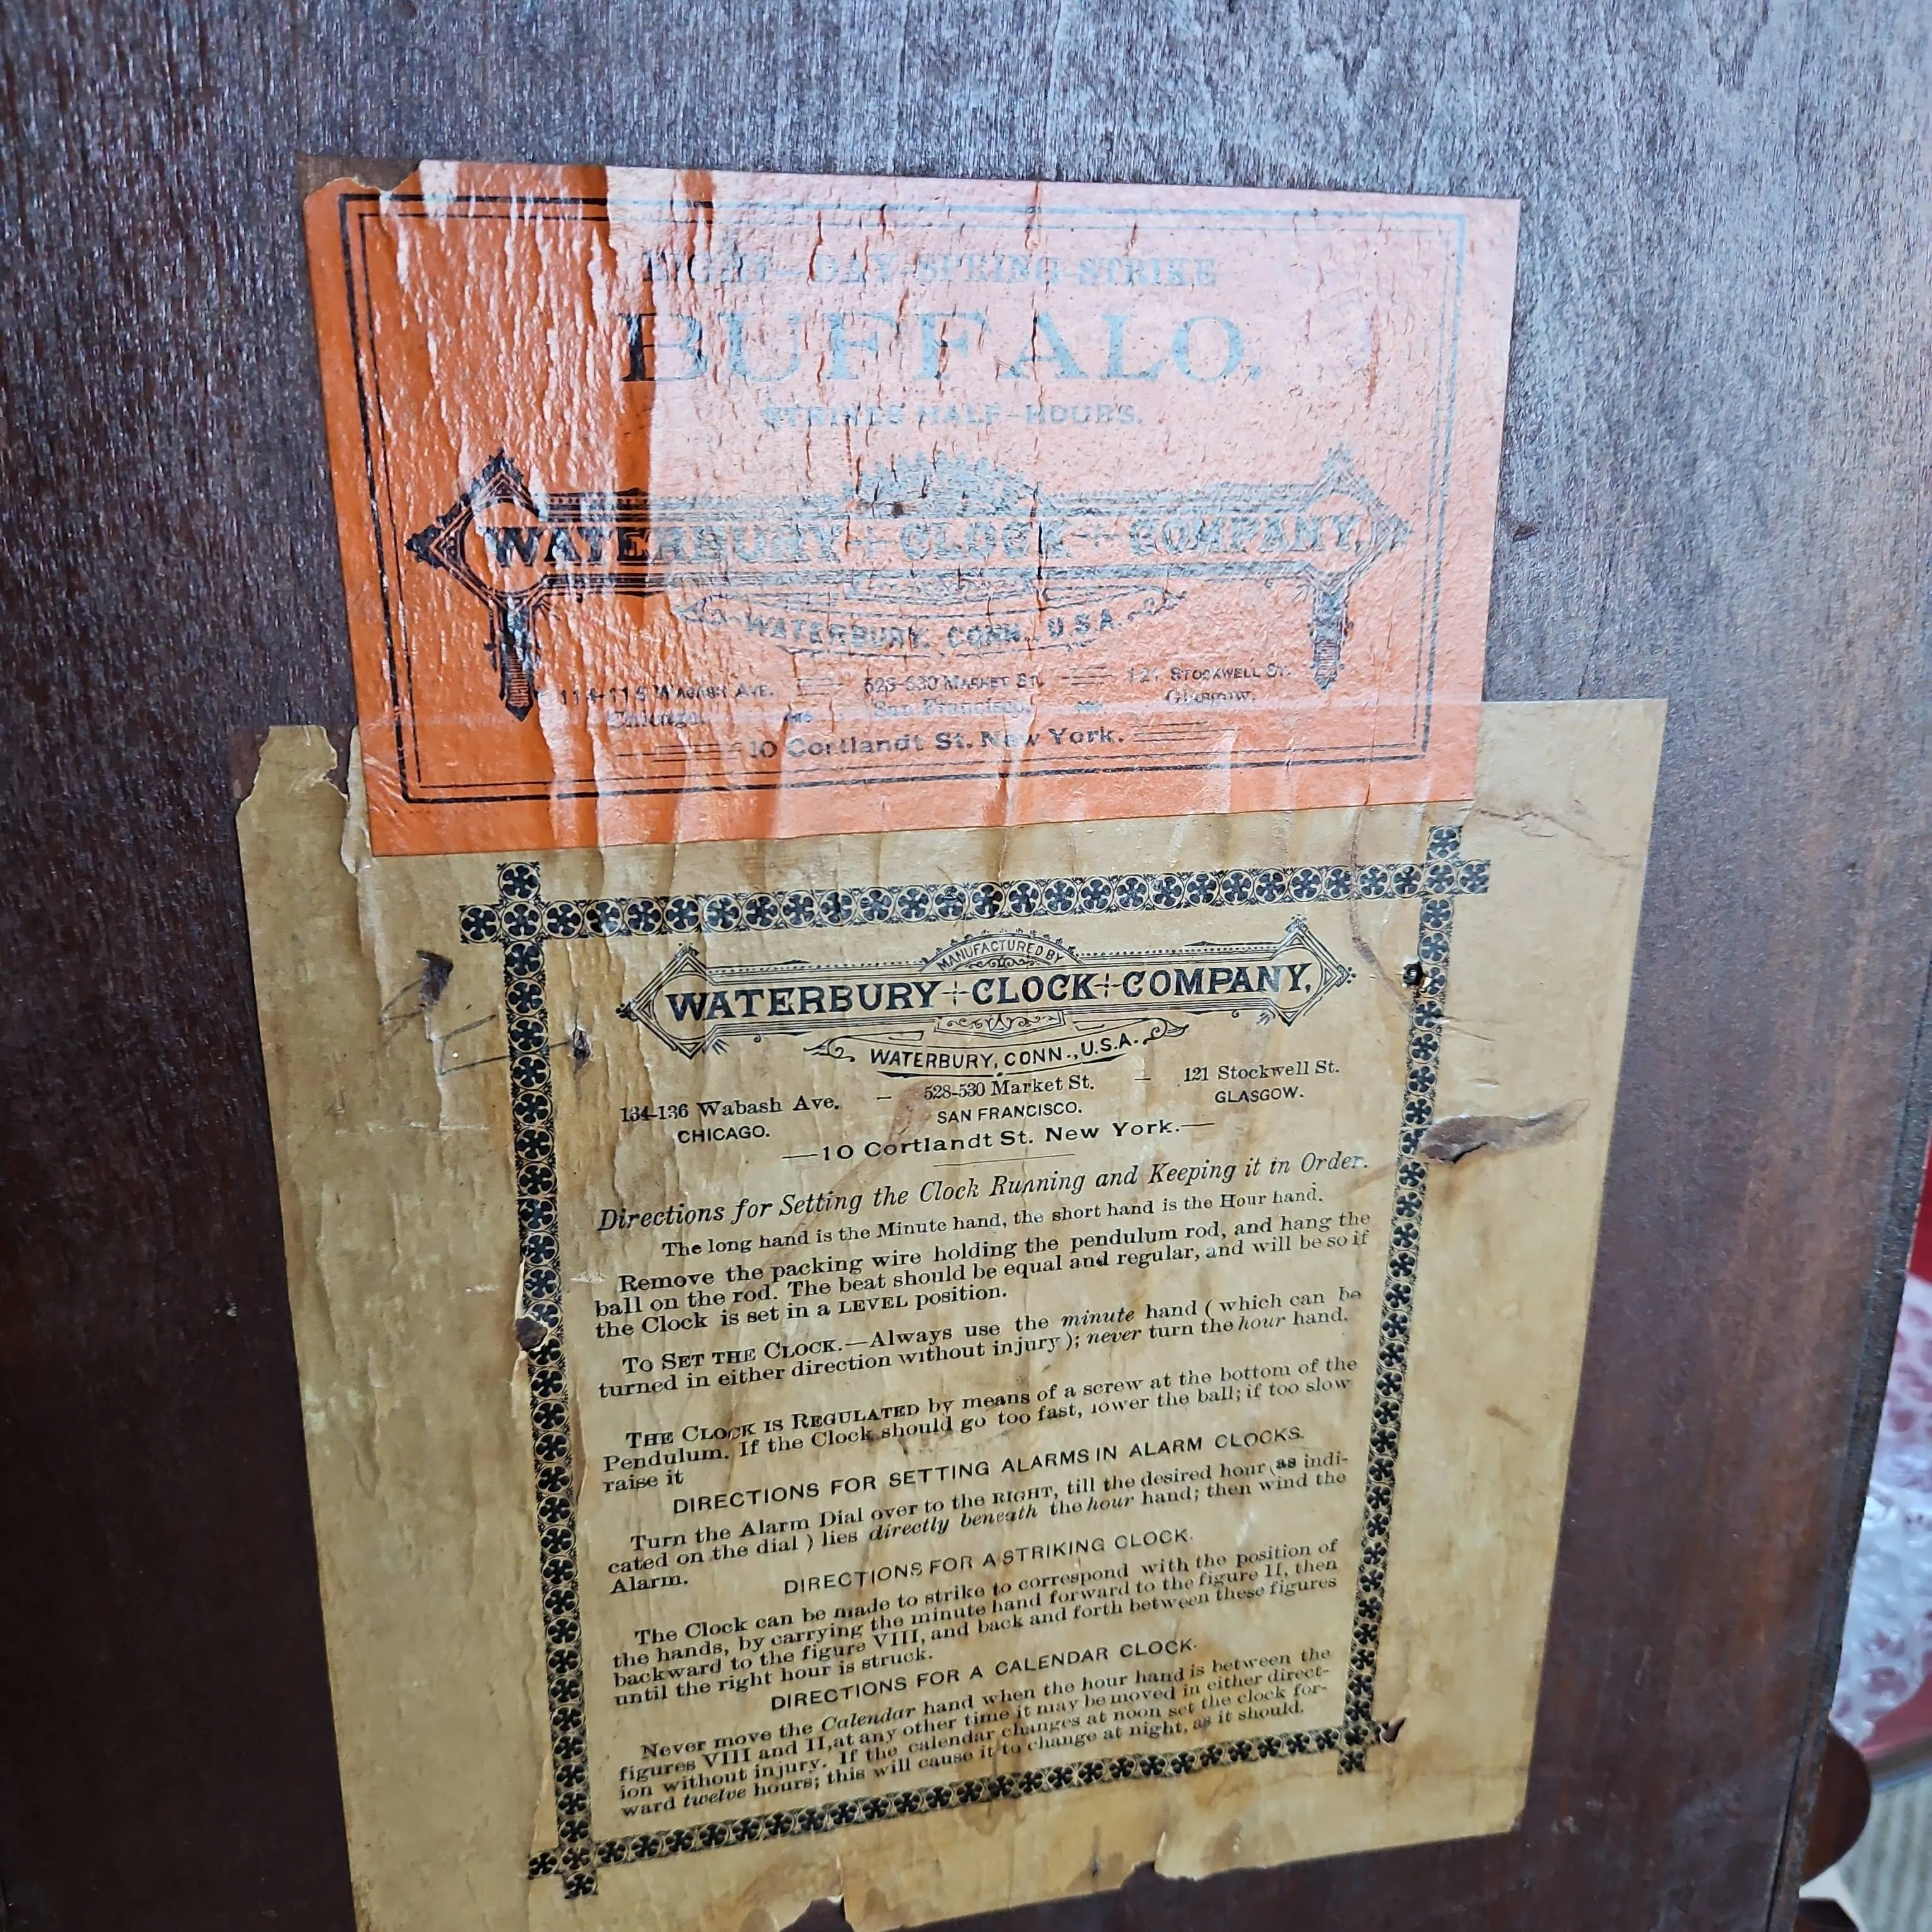 EIGHT-DAY-SPRING-STRIKE
BUFFALO.
STRIKES HALF-HOURS.
WATERBURY CLOCK COMPANY,
WATERBURY, CONN., U.S.A.
WABASH AVE. MARKET ST. 121 STOCKWELL ST.
Chicago. San Francisco. Glasgow.
10 Cortlandt St. New York.
MANUFACTURED BY
WATERBURY CLOCK COMPANY,
WATERBURY, CONN., U.S.A.
134-136 Wabash Ave. — 528-530 Market St. — 121 Stockwell St.
CHICAGO. SAN FRANCISCO. GLASGOW.
—10 Cortlandt St. New York.—
Directions for Setting the Clock Running and Keeping it in Order.
The long hand is the Minute hand, the short hand is the Hour hand.
Remove the packing wire holding the pendulum rod, and hang the
ball on the rod. The beat should be equal and regular, and will be so if
the Clock is set in a LEVEL position.
TO SET THE CLOCK.—Always use the minute hand ( which can be
turned in either direction without injury ); never turn the hour hand.
THE CLOCK IS REGULATED by means of a screw at the bottom of the
Pendulum. If the Clock should go too fast, lower the ball; if too slow
raise it
DIRECTIONS FOR SETTING ALARMS IN ALARM CLOCKS.
Turn the Alarm Dial over to the RIGHT, till the desired hour (as indi-
cated on the dial ) lies directly beneath the hour hand; then wind the
Alarm.
DIRECTIONS FOR A STRIKING CLOCK.
The Clock can be made to strike to correspond with the position of
the hands, by carrying the minute hand forward to the figure II, then
backward to the figure VIII, and back and forth between these figures
until the right hour is struck.
DIRECTIONS FOR A CALENDAR CLOCK.
Never move the Calendar hand when the hour hand is between the
figures VIII and II, at any other time it may be moved in either direct-
ion without injury. If the calendar changes at noon set the clock for-
ward twelve hours; this will cause it to change at night, as it should.